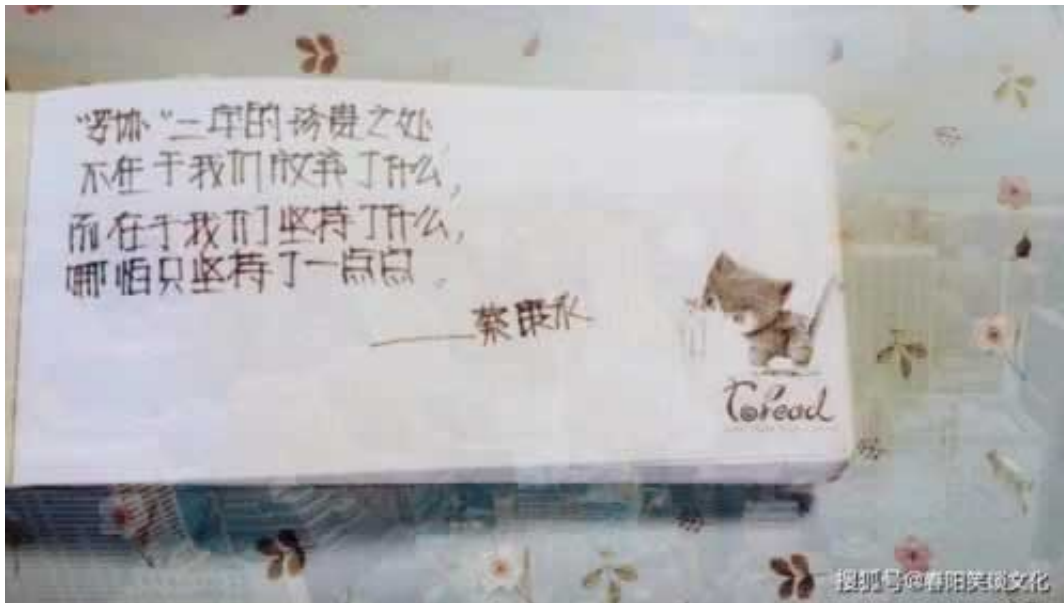 “妥协”二字的珍贵之处
不在于我们放弃了什么,
而在于我们坚持了什么,
哪怕只坚持了一点点。
——蔡康永
Toread
搜狐号@春阳笑 文化